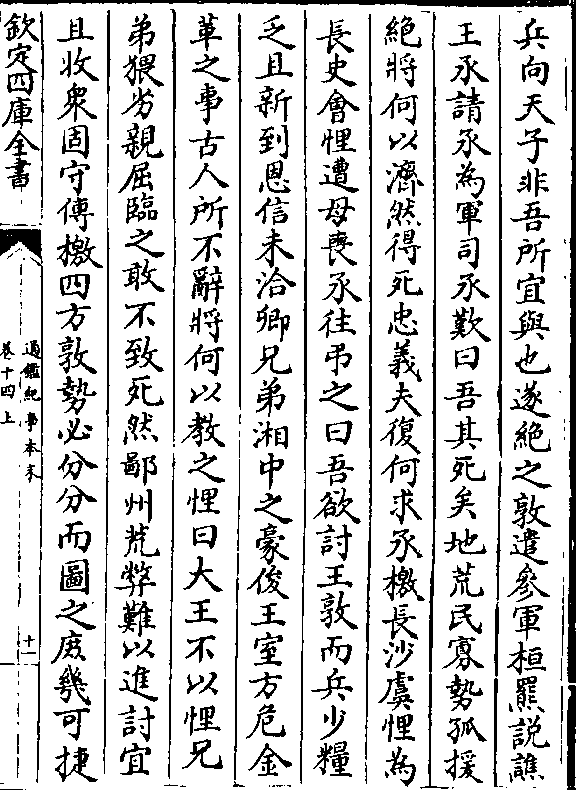 兵向天子非吾所宜與也遂絶之敦遣參軍桓羆説譙
王氶請氶為軍司氶歎曰吾其死矣地荒民寡勢孤援
絶將何以濟然得死忠義夫復何求氶檄長沙虞悝為
長史會悝遭母喪氶往弔之曰吾欲討王敦而兵少糧
乏且新到恩信未洽卿兄弟湘中之豪俊王室方危金
革之事古人所不辭將何以教之悝曰大王不以悝兄
弟猥劣親屈臨之敢不致死然鄙州荒弊難以進討宜
且收衆固守傳檄四方敦勢必分分而圖之庶幾可捷
欽定四庫全書
通鑑紀事本末
卷十四上
十一